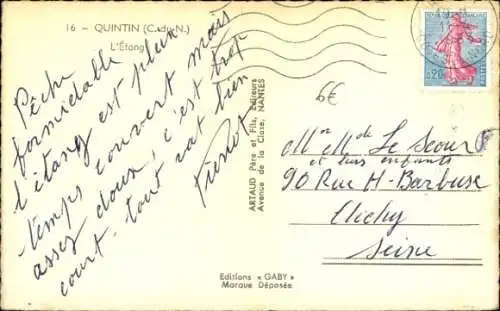 16 - QUINTIN (C.-du-N.)
L'Étang
Pêche
formidable
l'étang est plein
temps couvert mais
assez doux, c'est trop
court. tout va bien
ARTAUD Père et Fils, Éditeurs
Avenue de la Close, NANTES
Editions « GABY »
Marque Déposée
REPUBLIQUE FRANÇAISE
0,20
POSTES
6€
Mr Me Le Scour
et leurs enfants
90 Rue H-Barbuse
Clichy
Seine